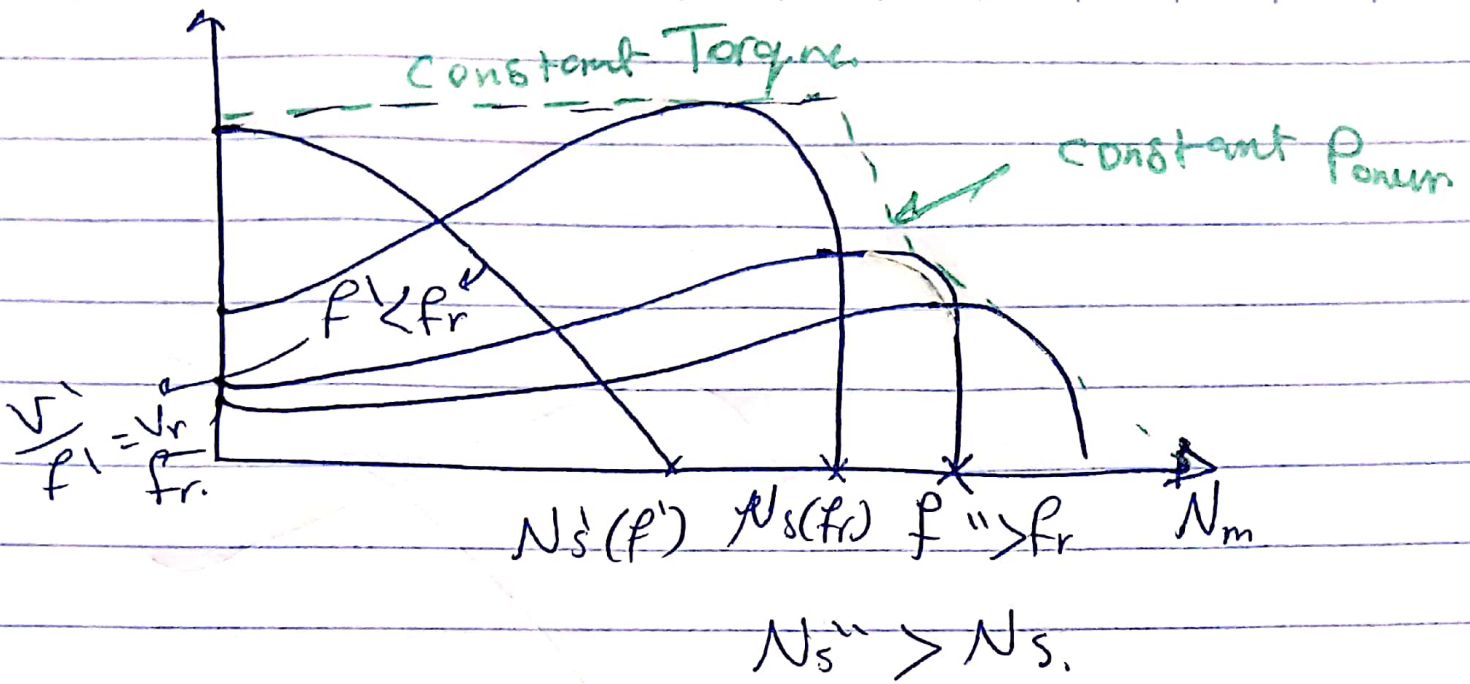 Constant Torque
Constant Power
f' < fr
V'/f' = Vr/fr.
Ns'(f') Ns(fr) f" > fr Nm
Ns" > Ns.